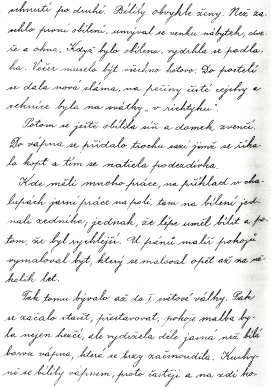 schnutí po druhé. Bílily obvykle ženy. Než za-
schlo první bílení, umýval se venku nábytek, dve-
ře a okna. Když bylo obíleno, vydrhla se podla-
ha. Večer muselo být všechno hotovo. Do postelí
se dala nová sláma, na peřiny čisté cejchy a
sednice byla na svátky „v richtyku".
Potom se ještě obílila síň a domek zvenčí.
Do vápna se přidalo trochu sazí jimž se říka-
lo kopt a tím se natřela podezdívka.
Kde měli mnoho práce, na příklad v cha-
lupách jarní práce na poli, tam na bílení jed-
nali zedníka, jednak, že lépe uměl bílit a po-
tom, že byl rychlejší. U pánů malíř pokojů
vymaloval byt, který se maloval opět až za ně-
kolik let.
Tak tomu bývalo až do I. světové války. Pak
se začalo stavět, přestavovat, pokoje malba by-
la nejen hezčí, ale vydržela déle jasná než bílá
barva vápna, která se brzy začmoudila. Kuchy-
ně se bílily vápnem, proto častěji a na zdi ko-